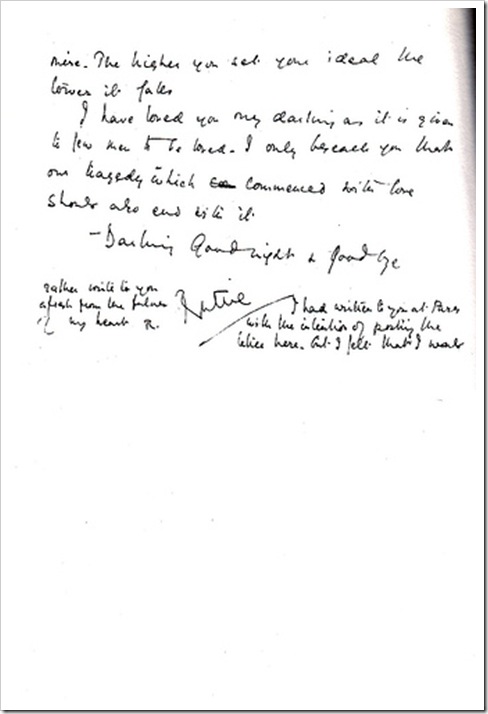 mire. The higher you set your ideal the
lower it falls
I have loved you my darling as it is given
to few men to be loved. I only beseach you that
our tragedy which commenced with love
should also end with it.
—Darling Goodnight & Goodbye
Ruttie
I had written to you at Paris
with the intention of posting the
letter here. But I felt that I would
rather write to you
afresh from the fulness
of my heart R.